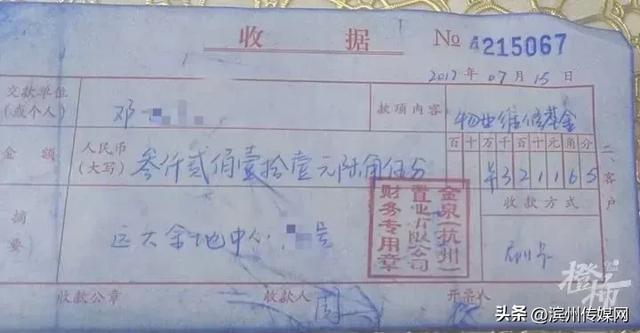 收 据 № A215067
2017 年 07 月 15 日
交款单位(或个人) 邓 款项内容 物业维修基金
金额 人民币(大写) 叁仟贰佰壹拾壹元陆角伍分 百 十 万 千 百 十 元 角 分
¥ 3 2 1 1 6 5
摘要 远大金地中心 号 收款方式
刷卡
金泉(杭州)
置业有限公司
财务专用章
二:客户
收款公章 收款人 周 开票人
橙柿
头条 @滨州传媒网